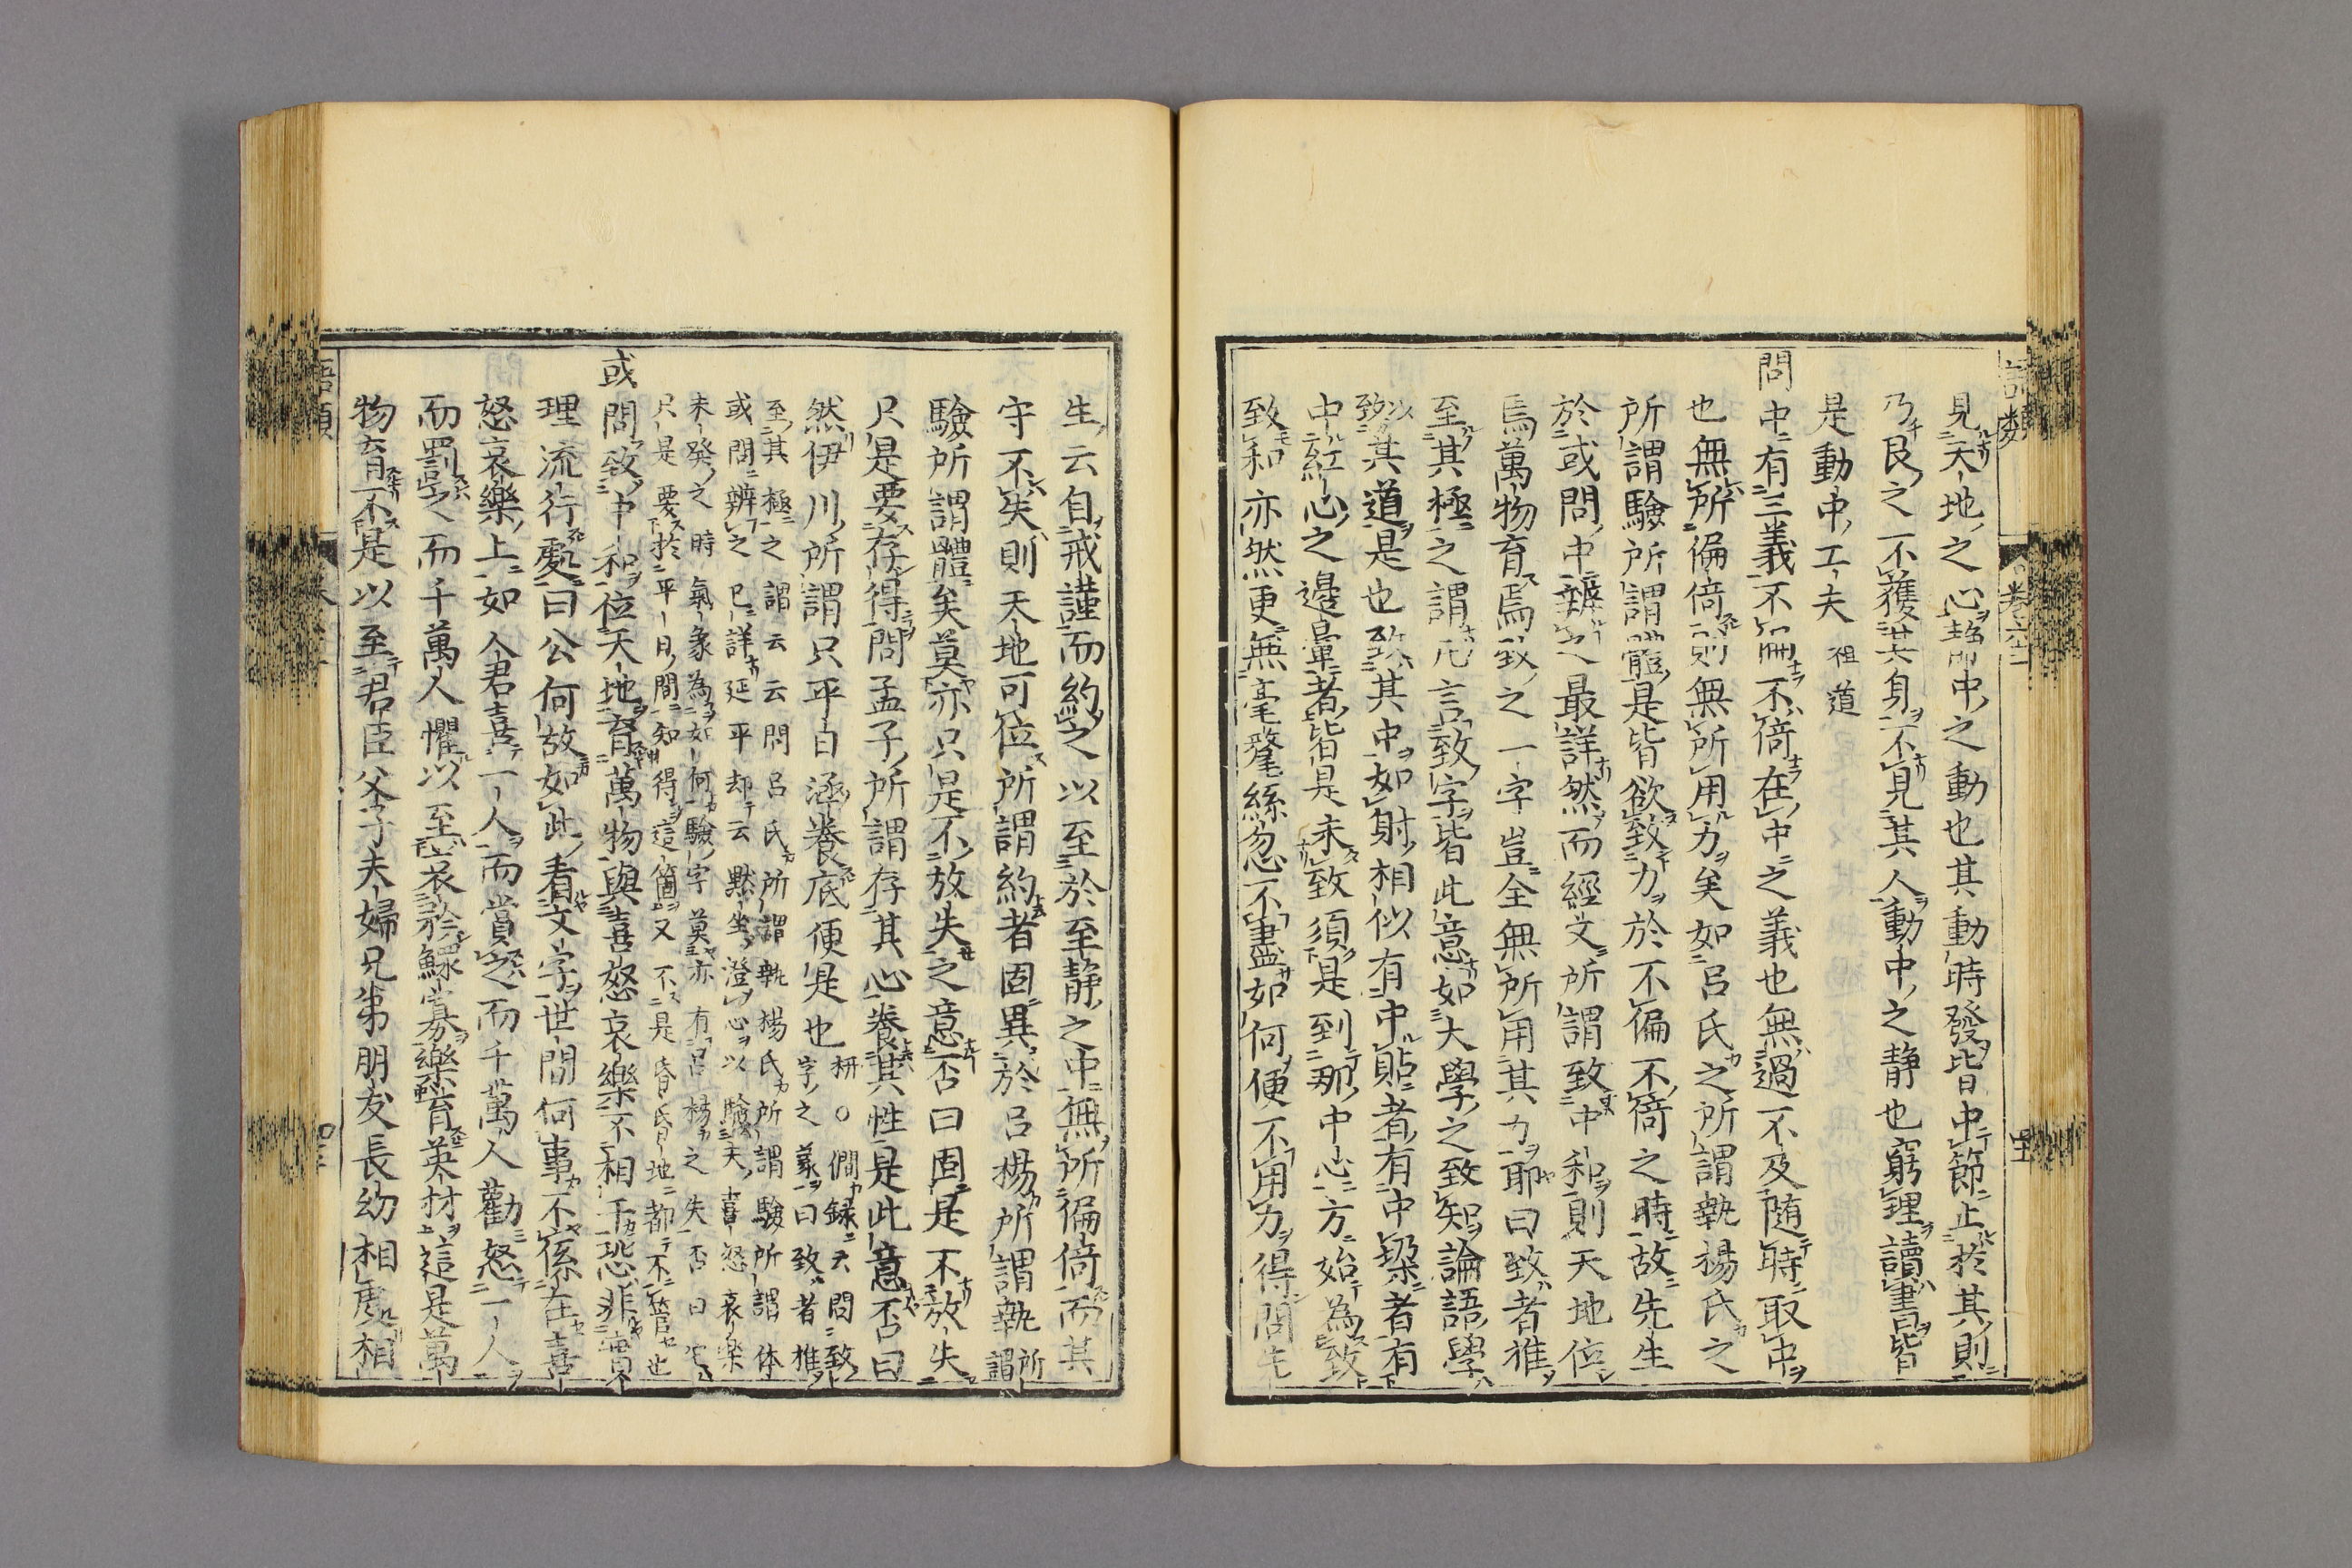 語類 卷六十二
見天地之心静中之動也其動時發皆中節止於其則
乃艮之不獲其身不見其人動中之静也窮理讀書皆
是動中工夫 祖道
問中有三義不偏不倚在中之義也無過不及随時取中
也無所偏倚則無所用力矣如呂氏之所謂執楊氏之
所謂驗所謂體是皆欲致力於不偏不倚之時故先生
於或問中辨之最詳然而經文所謂致中和則天地位
焉萬物育焉致之一字豈全無所用其力耶曰致者推
至其極之謂凡言致字皆此意如大學之致知論語學
以致其道是也致其中如射相似有中貼者有中垜者有
中紅心之邊暈者皆是未致須是到那中心方始為致
致和亦然更無毫釐絲忽不盡如何便不用力得問先
生云自戒謹而約之以至於至静之中無所偏倚而其
守不失則天地可位所謂約者固異於呂楊所謂執所謂
驗所謂體矣莫亦只是不放失之意否曰固是不放失
只是要存得問孟子所謂存其心養其性是此意否曰
然伊川所謂只平日涵養底便是也 枅○僩録云問致
字之義曰致者推
至其極之謂云云問呂氏所謂執楊氏所謂驗所謂体
或問辨之已詳延平却云黙坐澄心以驗夫喜怒哀樂
未發之時氣象為如何驗字莫亦有呂楊之失否曰它
只是要於平日間知得這箇又不是昏昏地都不管也
或問致中和位天地育萬物與喜怒哀樂不相干恐非實
理流行處曰公何故如此看文字世間何事不係在喜
怒哀樂上如人君喜一人而賞之而千萬人勸怒一人
而罰之而千萬人懼以至哀矜鰥寡樂育英材這是萬
物育不是以至君臣父子夫婦兄弟朋友長幼相處相
語類